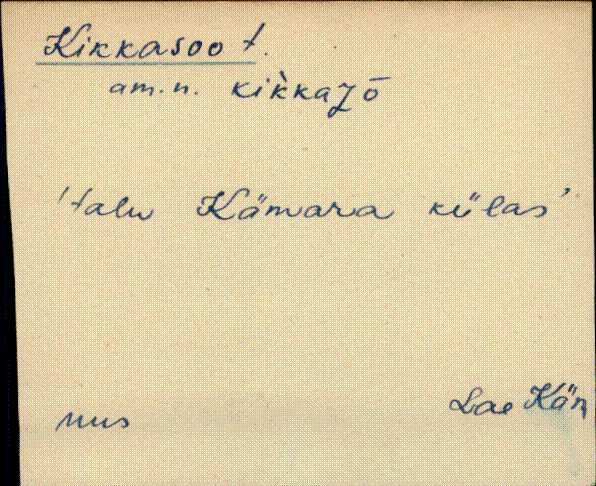 Kikkasoo t.
am.n. kik̀kaʒō
'talu Kämara külas'
nus
Lae Kän